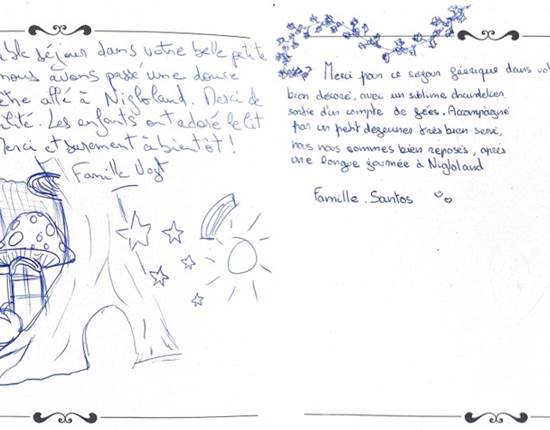 séjour dans votre belle petite
nous avons passé une douce
être allé à Nigloland. Merci de
Les enfants ont adoré le lit
Merci et surement à bientôt !
Famille Vogt
Merci pour ce séjour féerique dans
bien décoré, avec un sublime chandelier
sortie d'un compte de fées. Accompagné
par un petit déjeuner très bien servi,
nous nous sommes bien reposés, après
une longue journée à Nigloland
Famille. Santos